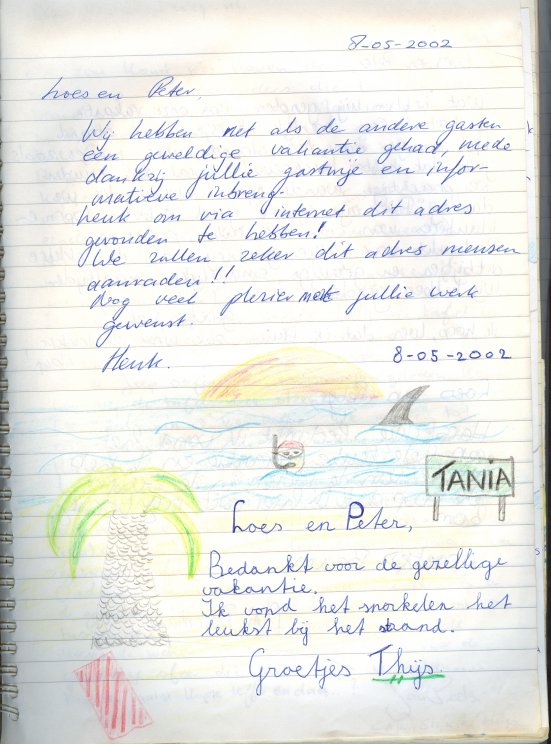 8-05-2002
Loes en Peter,
Wij hebben net als de andere gasten
een geweldige vakantie gehad, mede
dankzij jullie gastvrije en infor-
matieve inbreng.
Leuk om via internet dit adres
gevonden te hebben!
We zullen zeker dit adres mensen
aanraden!!
Nog veel plezier met jullie werk
gewenst.
Henk.
8-05-2002
TANIA
Loes en Peter,
Bedankt voor de gezellige
vakantie.
Ik vond het snorkelen het
leukst bij het strand.
Groetjes Thijs.